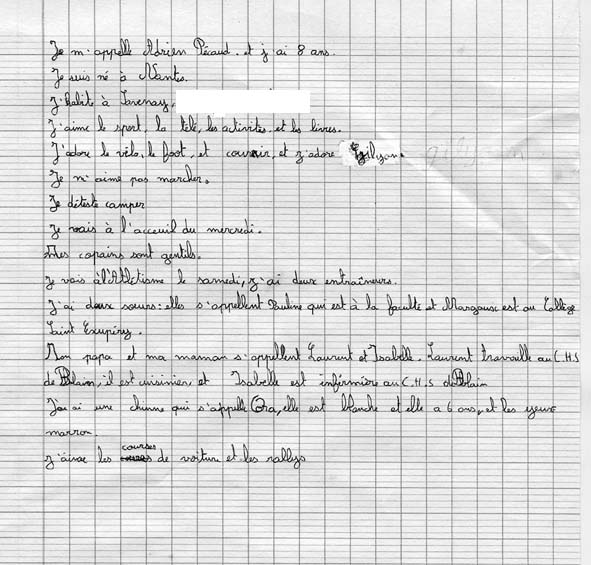 Je m'appelle Adrien Pécaud. et j'ai 8 ans.
Je suis né à Nantes.
J'habite à Savenay,
J'aime le sport, la télé, les activités, et les livres.
J'adore le vélo, le foot, et courir, et j'adore
Je n'aime pas marcher.
Je déteste camper
Je vais à l'acceuil du mercredi.
Mes copains sont gentils.
Je vais à l'Athlétisme le samedi, j'ai deux entraîneurs.
J'ai deux sœurs: elles s'appellent Pauline qui est à la faculté et Margaux est au Collège
Saint Exupéry.
Mon papa et ma maman s'appellent Laurent et Isabelle. Laurent travaille au C.H.S
de Blain, il est cuisinier, et Isabelle est infirmière au C.H.S de Blain
J'ai une chienne qui s'appelle elle est blanche et elle a 6 ans, et les yeux
marron.
j'aime les courses de voiture et les rallys